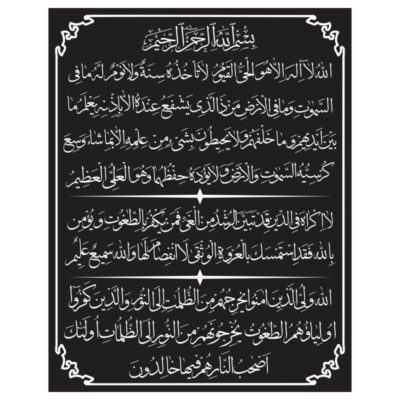 بِسْمِ اللهِ الرَّحْمٰنِ الرَّحِيْمِ
اللهُ لَا اِلٰهَ اِلَّا هُوَ الْحَىُّ الْقَيُّوْمُ لَا تَاْخُذُهُ سِنَةٌ وَلَا نَوْمٌ لَهُ مَا فِى
السَّمٰوٰتِ وَمَا فِى الْاَرْضِ مَنْ ذَا الَّذِى يَشْفَعُ عِنْدَهُ اِلَّا بِاِذْنِهِ يَعْلَمُ مَا
بَيْنَ اَيْدِيهِمْ وَمَا خَلْفَهُمْ وَلَا يُحِيطُونَ بِشَىْءٍ مِنْ عِلْمِهِ اِلَّا بِمَا شَاءَ وَسِعَ
كُرْسِيُّهُ السَّمٰوٰتِ وَالْاَرْضَ وَلَا يَؤُدُهُ حِفْظُهُمَا وَهُوَ الْعَلِىُّ الْعَظِيمُ
لَا اِكْرَاهَ فِى الدِّينِ قَدْ تَبَيَّنَ الرُّشْدُ مِنَ الْغَىِّ فَمَنْ يَكْفُرْ بِالطَّاغُوتِ وَيُؤْمِنْ
بِاللهِ فَقَدِ اسْتَمْسَكَ بِالْعُرْوَةِ الْوُثْقٰى لَا انْفِصَامَ لَهَا وَاللهُ سَمِيعٌ عَلِيمٌ
اللهُ وَلِىُّ الَّذِينَ اٰمَنُوا يُخْرِجُهُمْ مِنَ الظُّلُمَاتِ اِلَى النُّورِ وَالَّذِينَ كَفَرُوا
اَوْلِيَاؤُهُمُ الطَّاغُوتُ يُخْرِجُونَهُمْ مِنَ النُّورِ اِلَى الظُّلُمَاتِ اُولٰئِكَ
اَصْحَابُ النَّارِ هُمْ فِيهَا خَالِدُونَ